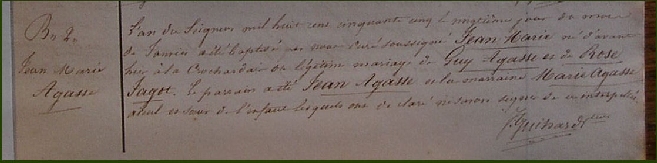 Bn 2.
Jean Marie
Agasse
L'an du Seigneur mil huit cent cinquante cinq le onzième jour du mois
de Janvier a été baptisé par nous Curé soussigné Jean Marie né d'avant
hier à la du légitime mariage de Guy Agasse et de Rose
Sagot. Le parrain a été Jean Agasse et la marraine Marie Agasse
aieul et sœur de l'enfant lesquels ont déclaré ne savoir signer de ce interpellés
Guihard